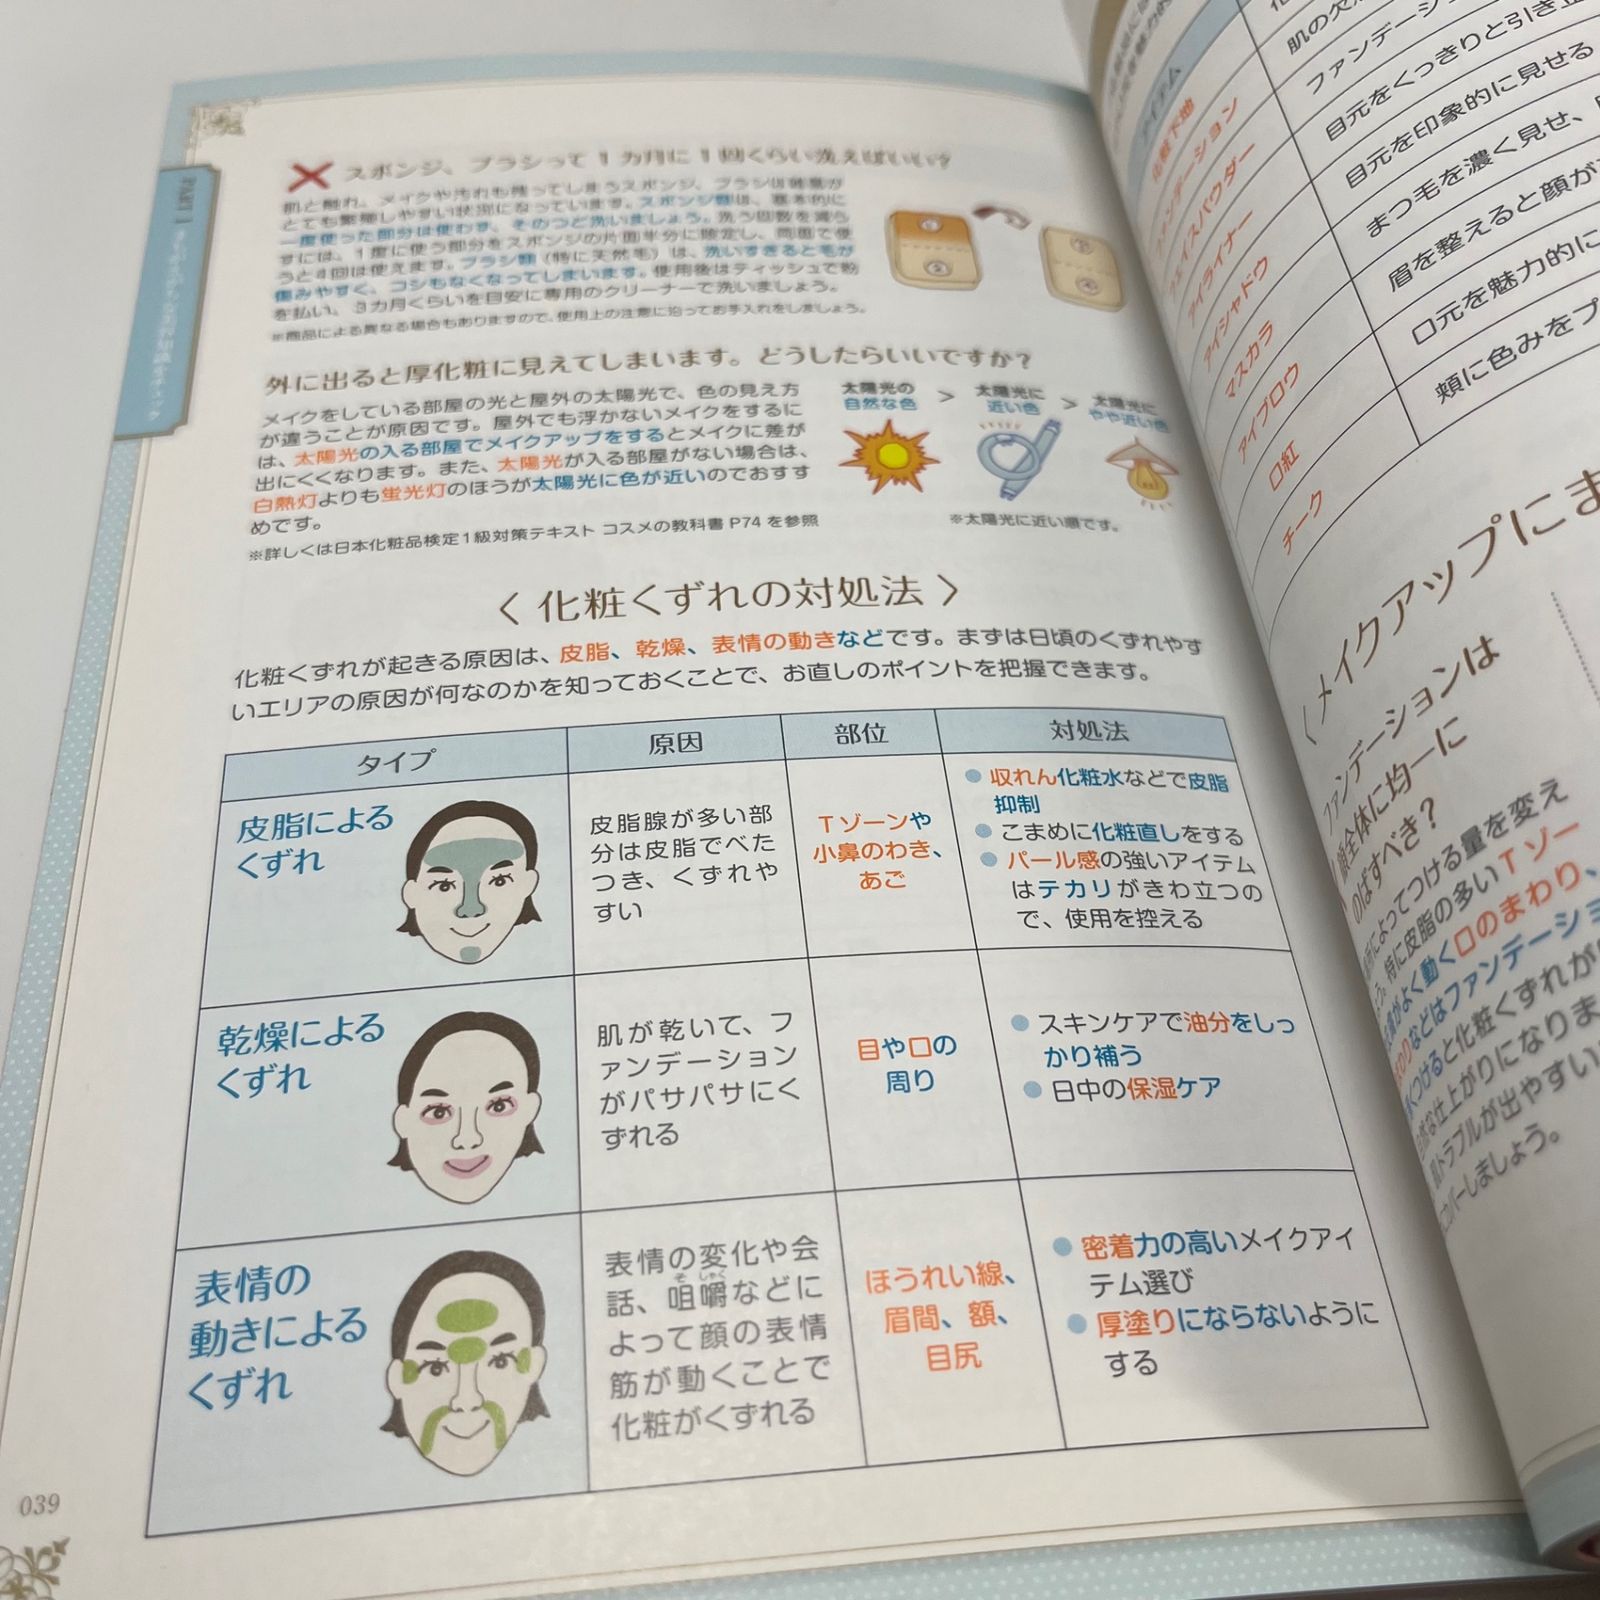 スポンジ、ブラシって1カ月に1回くらい洗えばいい?
肌と触れ、メイクや汚れも残ってしまうスポンジ、ブラシは雑菌が
とても繁殖しやすい状況になっています。スポンジ類は、基本的に
一度使った部分は使わず、そのつど洗いましょう。洗う回数を減ら
すには、1度に使う部分をスポンジの片面半分に限定し、両面で使
うと4回は使えます。ブラシ類(特に天然毛)は、洗いすぎると毛が
傷みやすく、コシもなくなってしまいます。使用後はティッシュで粉
を払い、3カ月くらいを目安に専用のクリーナーで洗いましょう。
※商品による異なる場合もありますので、使用上の注意に沿ってお手入れをしましょう。
外に出ると厚化粧に見えてしまいます。どうしたらいいですか?
メイクをしている部屋の光と屋外の太陽光で、色の見え方
が違うことが原因です。屋外でも浮かないメイクをするに
は、太陽光の入る部屋でメイクアップをするとメイクに差が
出にくくなります。また、太陽光が入る部屋がない場合は、
白熱灯よりも蛍光灯のほうが太陽光に色が近いのでおすす
めです。
※詳しくは日本化粧品検定1級対策テキスト コスメの教科書 P74 を参照
太陽光の
自然な色
>
太陽光に
近い色
>
太陽光に
やや近い色
※太陽光に近い順です。
〈 化粧くずれの対処法 〉
化粧くずれが起きる原因は、皮脂、乾燥、表情の動きなどです。まずは日頃のくずれやす
いエリアの原因が何なのかを知っておくことで、お直しのポイントを把握できます。
タイプ 原因 部位 対処法
皮脂による
くずれ
皮脂腺が多い部
分は皮脂でべた
つき、くずれや
すい
Tゾーンや
小鼻のわき、
あご
● 収れん化粧水などで皮脂
抑制
● こまめに化粧直しをする
● パール感の強いアイテム
はテカリがきわ立つの
で、使用を控える
乾燥による
くずれ
肌が乾いて、フ
ァンデーション
がパサパサにく
ずれる
目や口の
周り
● スキンケアで油分をしっ
かり補う
● 日中の保湿ケア
表情の
動きによる
くずれ
表情の変化や会
話、咀嚼などに
そ しゃく
よって顔の表情
筋が動くことで
化粧がくずれる
ほうれい線、
眉間、額、
目尻
● 密着力の高いメイクアイ
テム選び
● 厚塗りにならないように
する
039
アイテム
化粧下地
ファンデーション
フェイスパウダー
アイライナー
アイシャドウ
マスカラ
アイブロウ
口紅
チーク
肌の欠
ファンデーショ
目元をくっきりと引き立
目元を印象的に見せる
まつ毛を濃く見せ、
眉を整えると顔が
口元を魅力的に
頬に色みをプ
〈メイクアップにま
ファンデーションは
顔全体に均一に
のばすべき?
によってつける量を変え
特に皮脂の多いTゾー
がよく動く口のまわり、
などはファンデーショ
つけると化粧くずれが
な仕上がりになりま
トラブルが出やすい
しましょう。